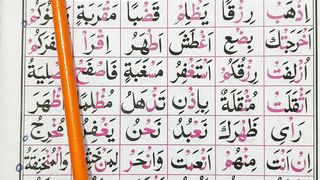 اِذْهَبْ رِزْقًا يَظْلِمُ قَضْبًا مَقْرَبَةٍ
اَخْرَجَكَ بِضْعِ اَغْطَشَ اَظْهَرُ اِقْرَاْ
اُزْلِفَتْ رِزْقُكُمْ اَسْتَغْفِرُ مَسْغَبَةٍ فَاصْفَحْ
اَثْقَلَتْ مُثْقَلَةٌ بِاِذْنِ تَذْهَلُ مُظْلِمًا ظَهَرَ
رَاٰی ظَهْرَكَ نَعْبُدُ نَحْنُ يَغْفِرُ مُخْرِجٌ
اِنْ اَنْتَ مِنْهُمْ اَنْعَمْتَ وَانْحَرْ وَالْمُنْخَنِقَةُ